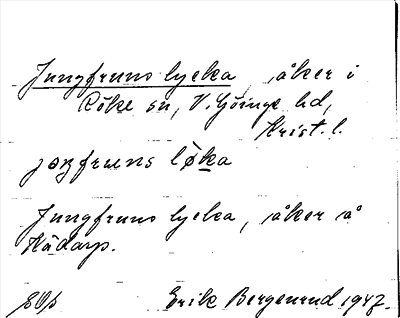 Jungfruns lycka, åker i
Röke sn, V. Göinge hd,
Krist. l.
joŋfruns løka
Jungfruns lycka, åker å
Rådarp.
Erik Bergenrud 1947.